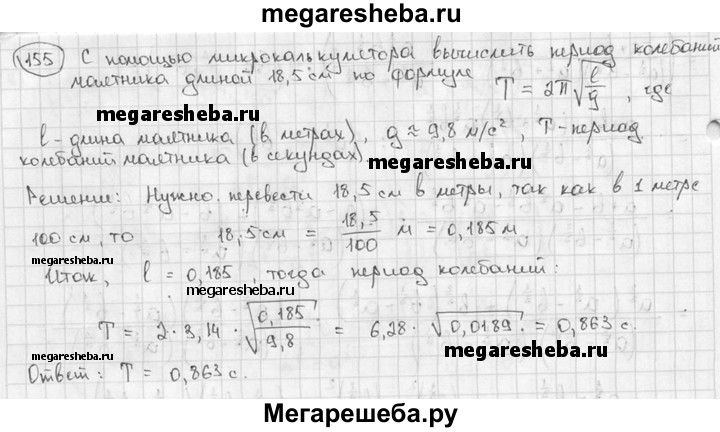 megaresheba.com
155 С помощью микрокалькулятора вычислить период колебаний
маятника длиной 18,5 см по формуле T = 2π√(l/g), где
megaresheba.com
l - длина маятника (в метрах), g ≈ 9,8 м/с², T - период
колебаний маятника (в секундах).
megaresheba.com
Решение: Нужно перевести 18,5 см в метры, так как в 1 метре
100 см, то 18,5 см = 18,5/100 м = 0,185 м.
Итак, l = 0,185, тогда период колебаний:
megaresheba.com
T = 2·3,14·√(0,185/9,8) = 6,28·√0,0189 = 0,863 с.
megaresheba.com
megaresheba.com
Ответ: T = 0,863 с.
Мегарешеба.ру